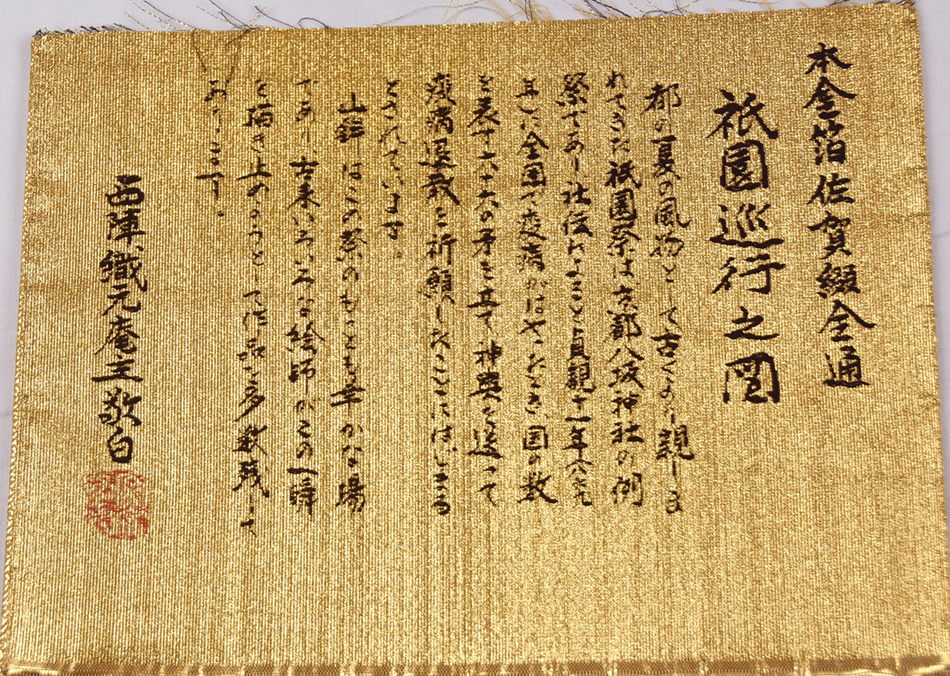 本金箔佐賀綴全通
祇園巡行之図
都の夏の風物として古くより親しま
れてきた祇園祭は京都八坂神社の例
祭であり社伝によると貞観十一年八六九
年に全国で疫病がはやったとき、国の数
を表す六十六の矛を立て神輿を送って
疫病退散を祈願したことにはじまる
とされています。
山鉾はこの祭のもっとも華かな場
であり古来いろいろな絵師がこの一瞬
を描き止めようとして作品を多数残して
おります。
西陣織元庵主敬白